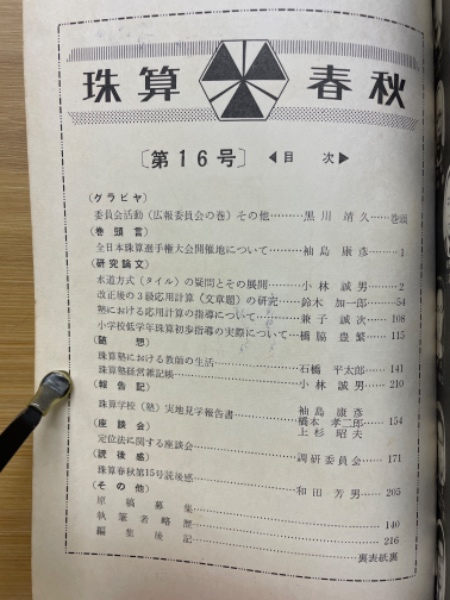 珠算 春秋
〔第16号〕 ◀目 次▶
(グラビヤ)
委員会活動(広報委員会の巻)その他………黒川 靖久…巻頭
(巻頭言)
全日本珠算選手権大会開催地について………袖島 康彦……1
(研究論文)
水道方式(タイル)の疑問とその展開………小林 誠男……2
改正後の3級応用計算(文章題)の研究……鈴木 加一郎……54
塾における応用計算の指導について…………兼子 誠次……108
小学校低学年珠算初歩指導の実際について…橋脇 豊繁……115
(随 想)
珠算塾における教師の生活………………石橋 平太郎……141
珠算塾経営雑記帳…………………………小林 誠男……210
(報告記)
珠算学校(塾)実地見学報告書………袖島 康彦
橋本 孝二郎……154
上杉 昭夫
(座談会)
定位法に関する座談会……………………調研委員会……171
(読後感)
珠算春秋第15号読後感……………………和田 芳男……205
(その他)
原稿募集
執筆者略歴……………………………………140
編集後記………………………………………216
裏表紙裏